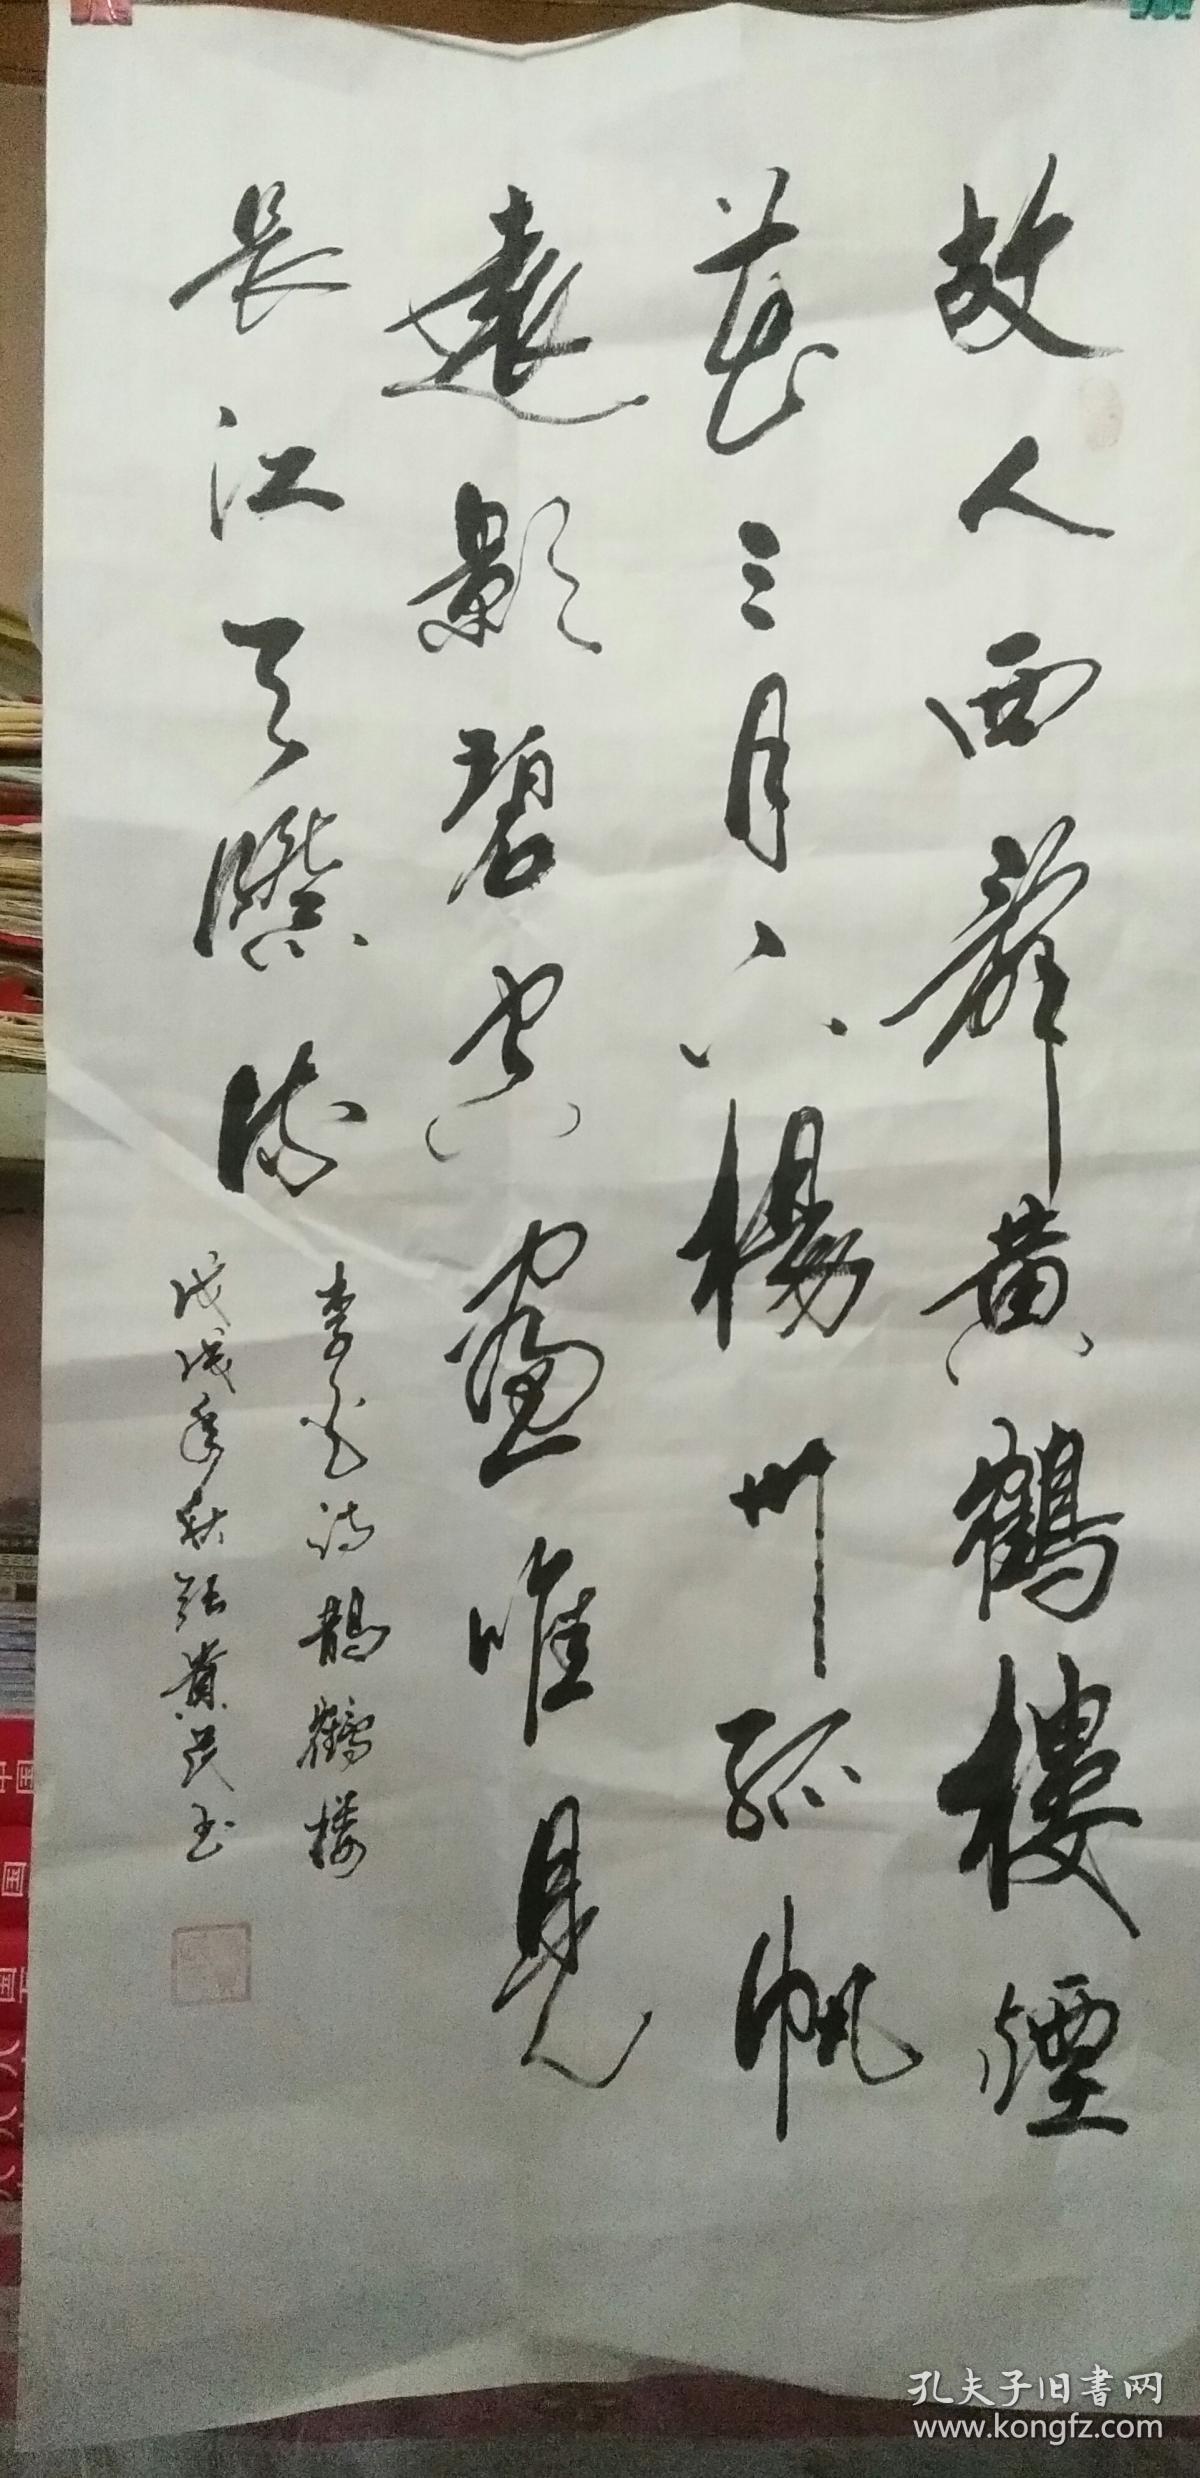 故人西辭黄鶴樓煙
花三月下楊州孤帆
遠影碧空盡唯見
長江天際流
李白诗鹤楼
戊戌年秋张民书
孔夫子旧書网
www.kongfz.com